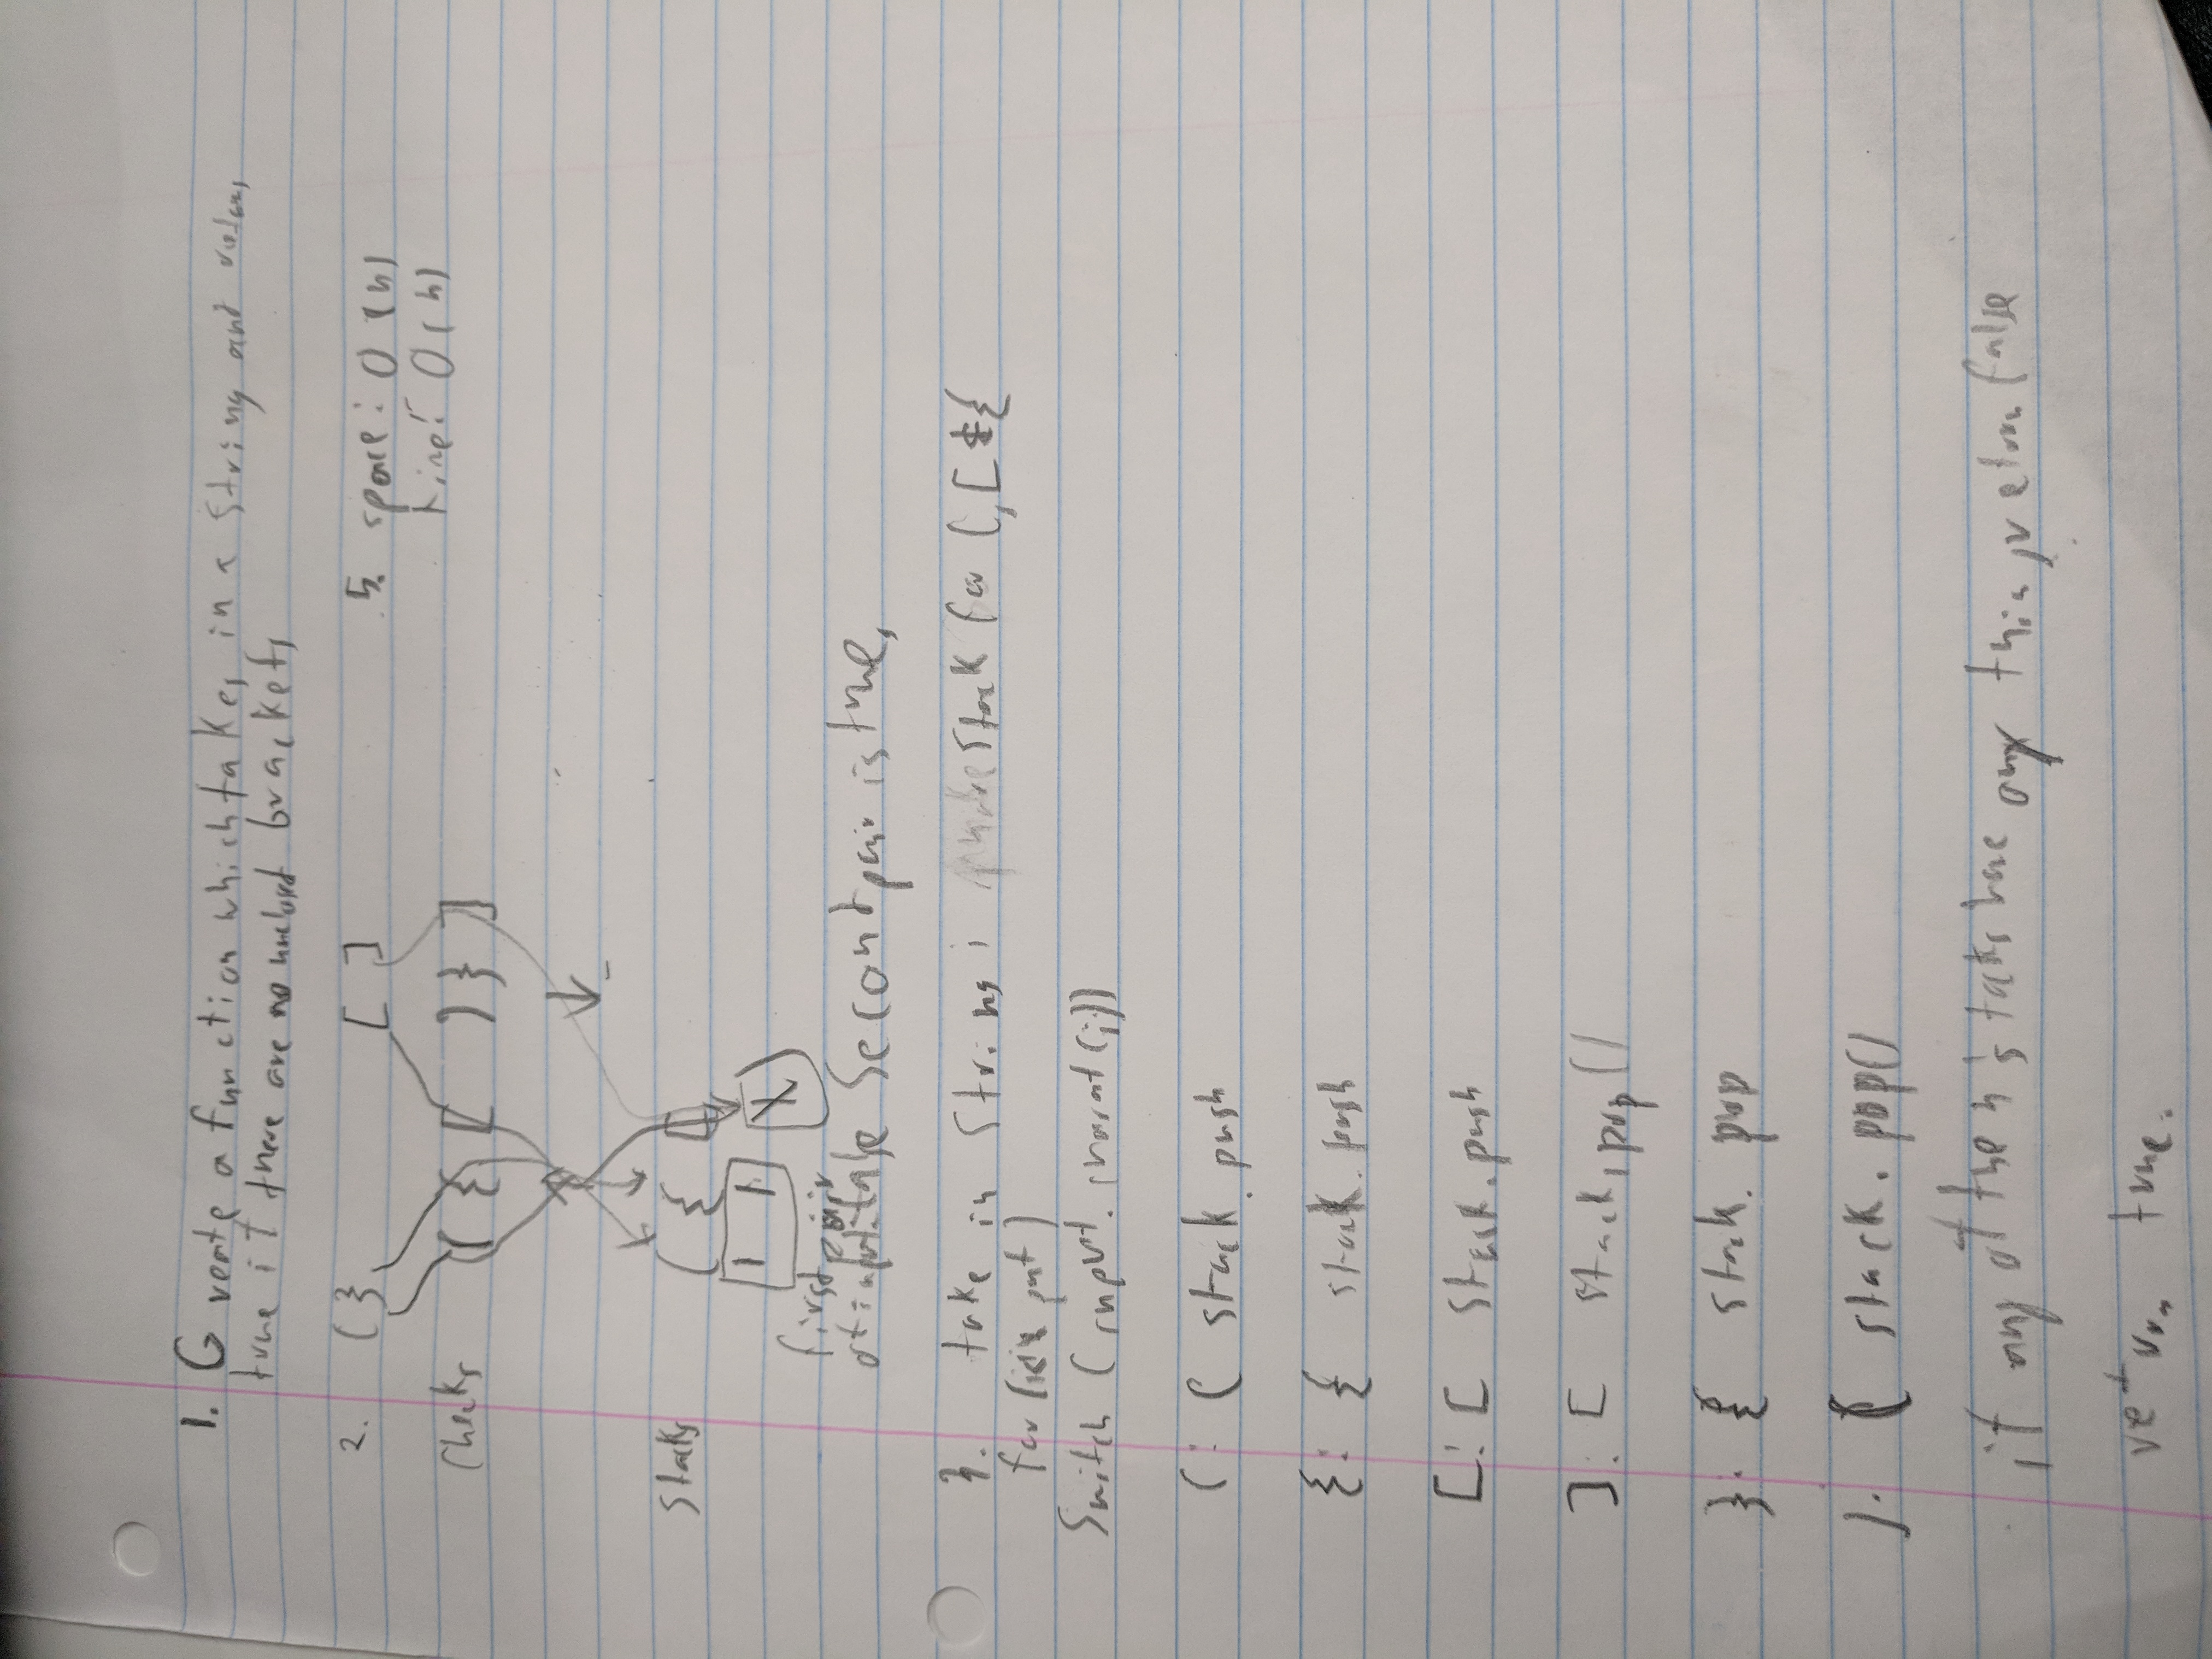 1. G vente a function which takes in a string and returns
true if there are no unclosed brackets
2. ( } [ ]
5. space: O(n)
time: O(n)
Checks ( { [ ) } ]
Stacks ( { [
1 1 X
first pair
of input: false Second pair is true,
3. take in string; make stack for (, [ {
for (input)
Switch (input.charat(i))
(: ( stack.push
{: { stack.push
[: [ stack.push
]: [ stack.pop()
}: { stack.pop
): ( stack.pop()
if any of the 3 stacks have any thing return false
return true.